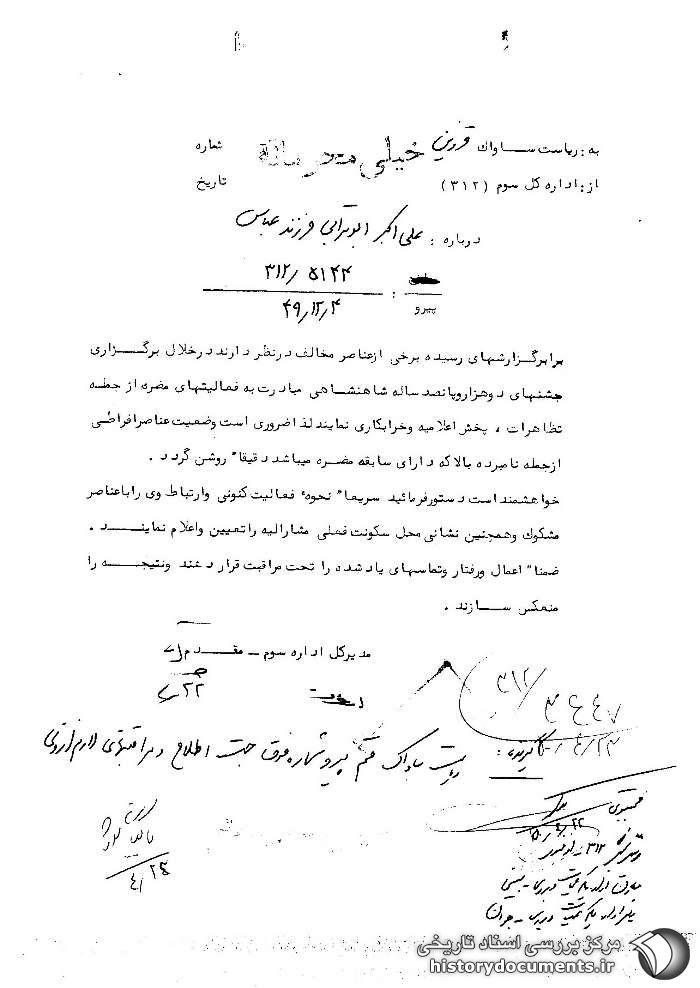 به : ریاست ساواک قزوین
خیلی محرمانه
شماره
از : اداره کل سوم (۳۱۲)
تاریخ
درباره : علی اکبر ابوترابی فرزند عباس
پیرو : ۳۱۲/۵۱۴۴
۴۹/۱۲/۴
برابر گزارشهای رسیده برخی از عناصر مخالف در نظر دارند در خلال برگزاری
جشنهای دوهزار و پانصد ساله شاهنشاهی مبادرت به فعالیتهای مضره از جمله
تظاهرات ، پخش اعلامیه و خرابکاری نمایند لذا ضروری است وضعیت عناصر افراطی
از جمله نامبرده بالا که دارای سابقه مضره میباشد دقیقا" روشن گردد .
خواهشمند است دستور فرمائید سریعا" نحوه فعالیت کنونی و ارتباط وی را با عناصر
مشکوک و همچنین نشانی محل سکونت فعلی مشارالیه را تعیین و اعلام نمایند .
ضمنا" اعمال و رفتار و تماسهای یاد شده را تحت مراقبت قرار دهند و نتیجه را
منعکس سازند .
مدیرکل اداره سوم - مقدم
۲۲
۳۱۲/
۴/۲۳
گیرنده : ریاست ساواک قم پیرو شماره فوق جهت اطلاع و مراقبتهای لازم
۵۰/۴/۲۲
۳۱۲
۴/۲۳
مرکز بررسی اسناد تاریخی
historydocuments.ir